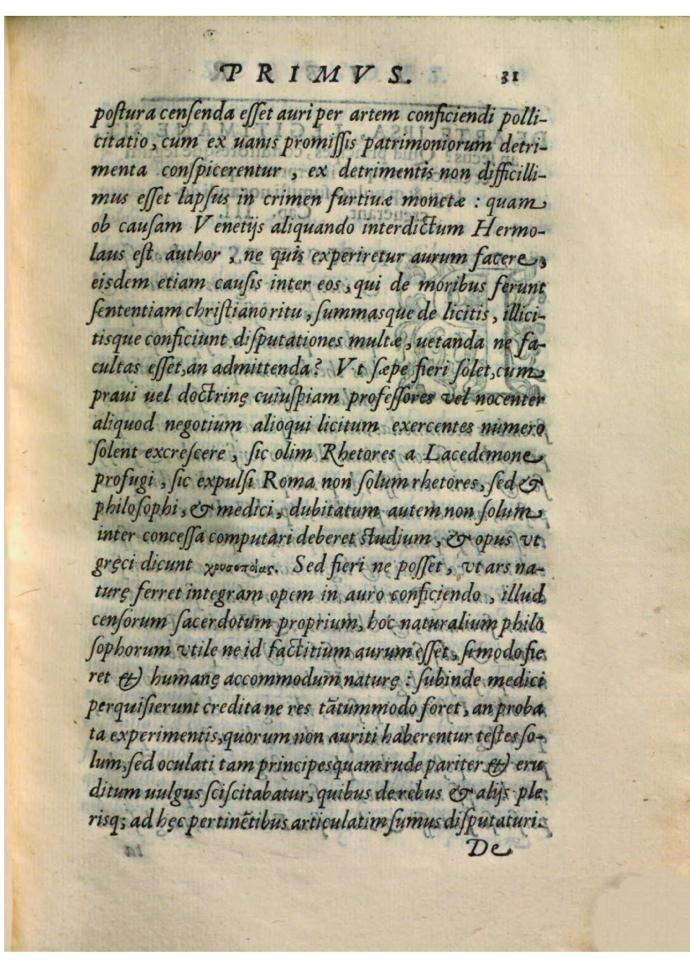 PRIMVS. 31
poſtura cenſenda eſſet auri per artem conficiendi polli-
citatio, cum ex uanis promiſſis patrimoniorum detri-
menta conſpicerentur, ex detrimentis non difficilli-
mus eſſet lapſus in crimen furtiuæ monetæ: quam
ob cauſam Venetijs aliquando interdictum Hermo-
laus eſt author, ne quis experiretur aurum facere,
eisdem etiam cauſis inter eos, qui de moribus ferunt
ſententiam chriſtiano ritu, ſummasque de licitis, illici-
tisque conficiunt diſputationes multæ, uetanda ne fa-
cultas eſſet, an admittenda? Vt ſæpe fieri ſolet, cum
praui uel doctrinę cuiuſpiam profeſſores vel nocenter
aliquod negotium alioqui licitum exercentes numero
ſolent excreſcere, ſic olim Rhetores a Lacedemone
profugi, ſic expulſi Roma non ſolum rhetores, ſed &
philoſophi, & medici, dubitatum autem non ſolum
inter conceſſa computari deberet ſtudium, & opus vt
gręci dicunt χρυσοποίας. Sed fieri ne poſſet, vt ars na-
turę ferret integram opem in auro conficiendo, illud
cenſorum ſacerdotum proprium, hoc naturalium philo
ſophorum vtile ne id factitium aurum eſſet, ſi modo fie
ret & humanę accommodum naturę: ſubinde medici
perquiſierunt credita ne res tātummodo foret, an proba
ta experimentis, quorum non auriti haberentur teſtes ſo-
lum, ſed oculati tam principes quam rude pariter & eru
ditum uulgus ſciſcitabatur, quibus de rebus & alijs ple
risq; ad hęc pertinētibus articulatim ſumus diſputaturi.
De